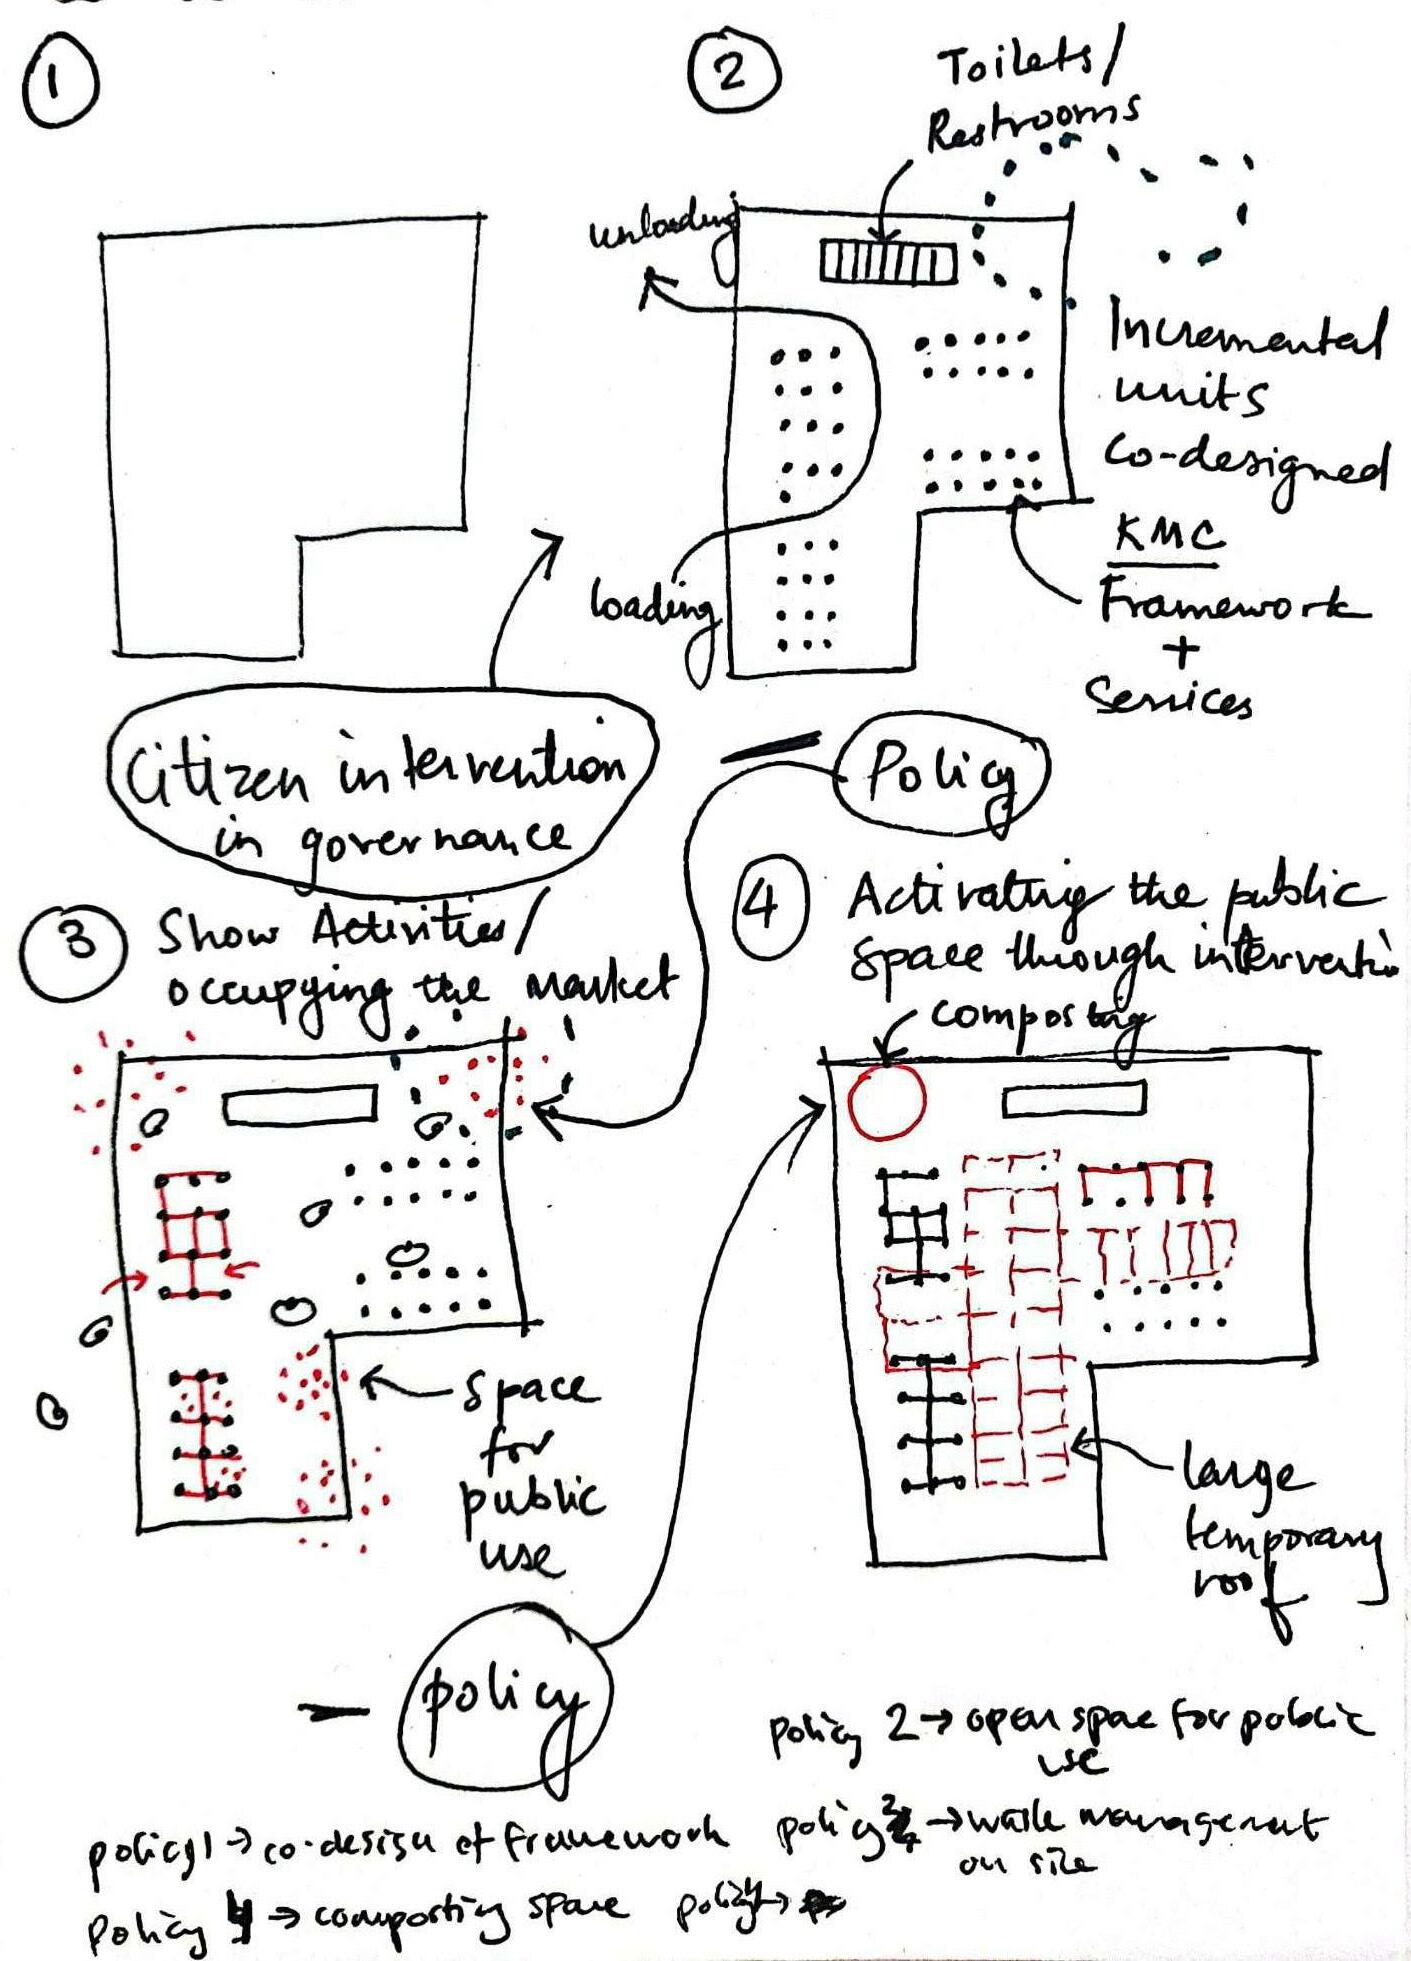 1
2
Toilets/
Restrooms
unloading
Incremental
units
co-designed
KMC
Framework
+
Services
loading
Citizen intervention
in governance
Policy
3 Show Activities/
occupying the market
4 Activating the public
space through interventi
composting
space
for
public
use
large
temporary
roof
policy
policy 2 → open space for public
use
policy 1 → co-design of framework
policy 3 → waste management
on site
policy 4 → composting space
policy 4 →